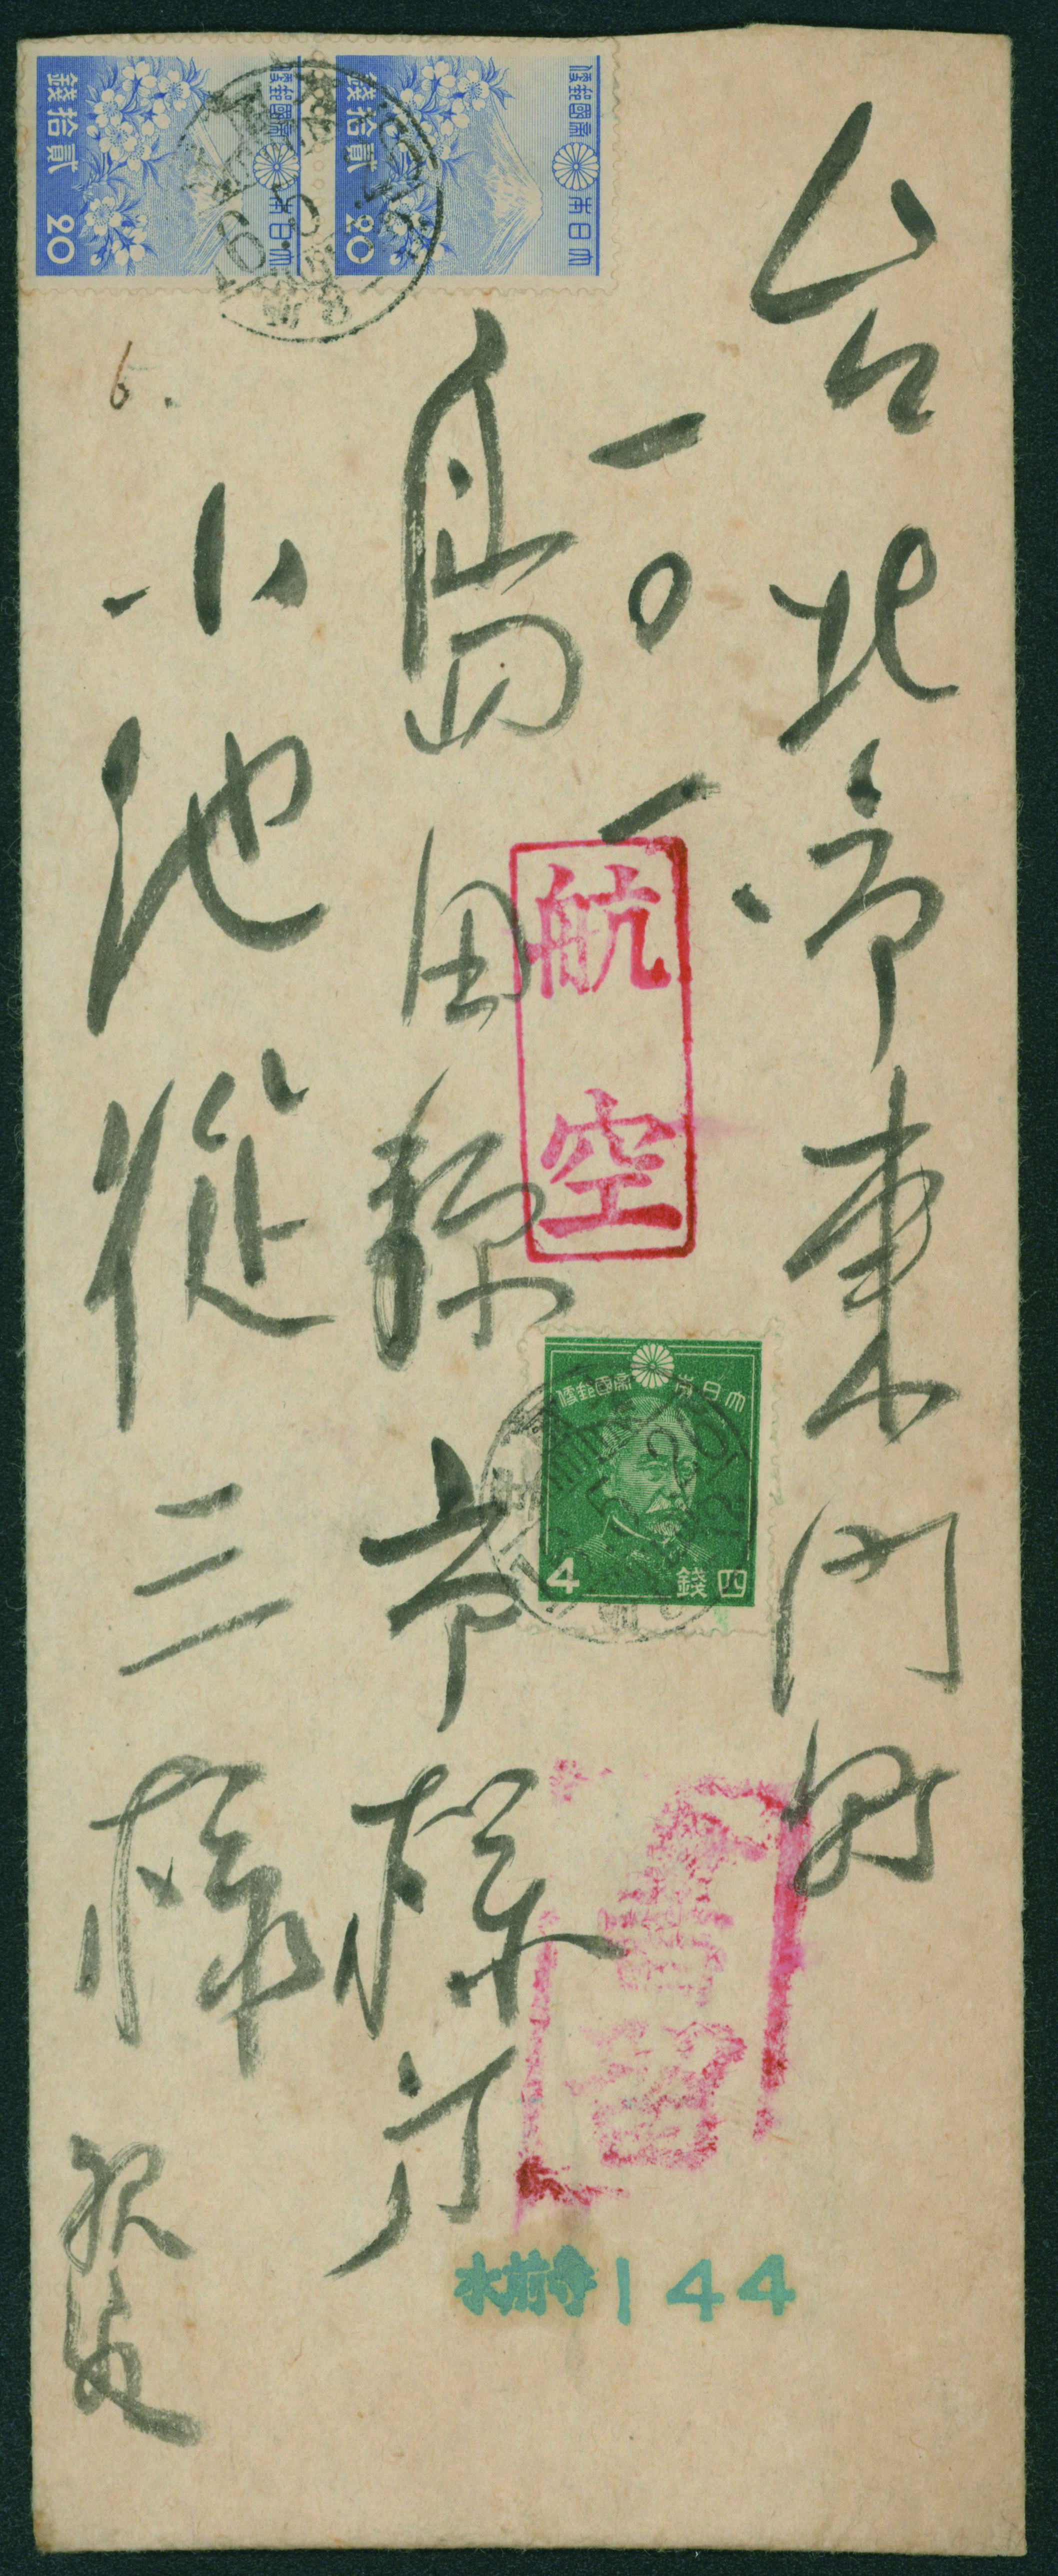 台北市東門町
一〇一、
島田縣市様方
小池從三様
航空
書留
水前寺144
大日本帝國郵便
貳拾錢
20
大日本帝國郵便
貳拾錢
20
大日本帝國郵便
四錢
4
6.